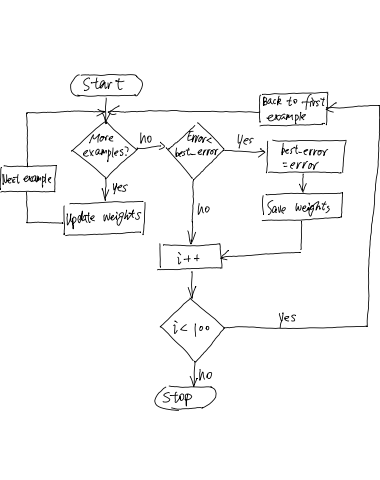 Start
Back to first
example
More
examples?
no
Error<
best_error
yes
best-error
=error
Next example
yes
Update weights
no
Save weights
i++
i<100
yes
no
Stop